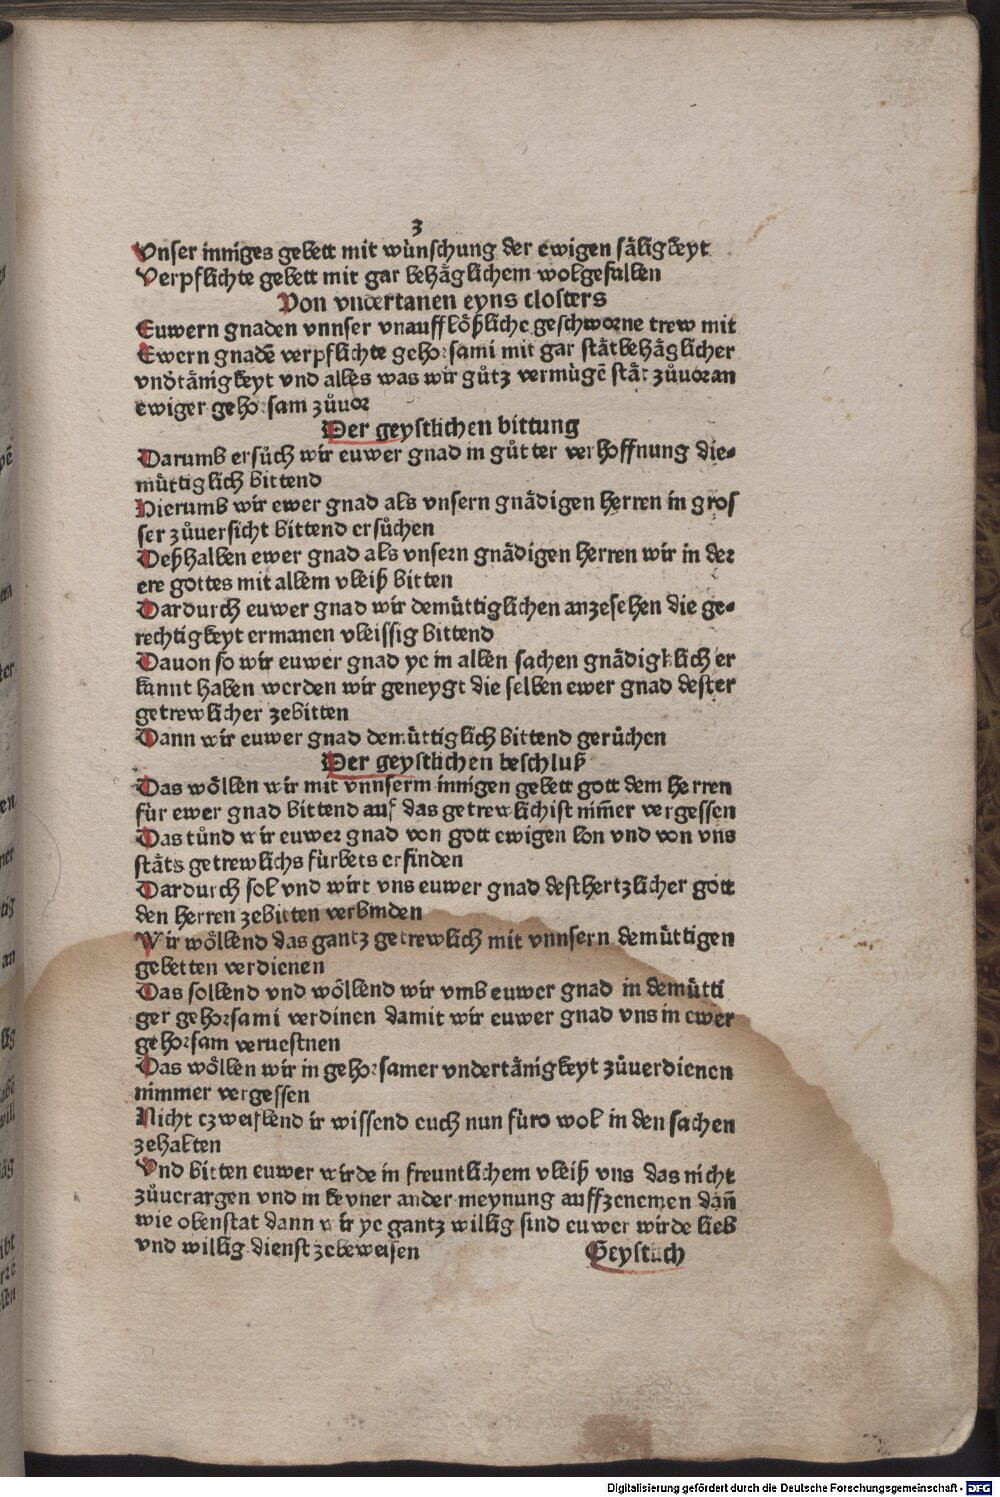 3
Vnser inniges gebett mit wünschung der ewigen sålikgkeyt
Verpflichte gebett mit gar behåglichem wolgefallen
Von vndertanen eyns closters
Euwern gnaden vnnser vnaufflößliche geschworne trew mit
Ewern gnadē verpflichte gehorsami mit gar ståtbehåglicher
vndtånigkeyt vnd alles was wir gůtz vermügē ståt zůuoran
ewiger gehorsam zůuor
Der geystlichen bittung
Darumb ersůch wir euwer gnad in gůtter verhoffnung die-
mütiglich bittend
Hierumb wir ewer gnad als vnsern gnådigen herren in gros
ser zůuersicht bittend ersůchen
Deßhalben ewer gnad als vnsern gnådigen herren wir in der
ere gottes mit allem vleiß bitten
Dardurch euwer gnad wir demüttiglichen anzesehen die ge-
rechtigkeyt ermanen vleissig bittend
Dauon so wir euwer gnad ye in allen sachen gnådigklich er
kannt haben werden wir geneygt die selben ewer gnad dester
getrewlicher zebitten
Dann wir euwer gnad demüttiglich bittend gerůchen
Der geystlichen beschluß
Das wöllen wir mit vnnserm innigen gebett gott dem herren
für ewer gnad bittend auf das getrewlichist nim̄er vergessen
Das tůnd wir euwer gnad von gott ewigen lon vnd von vns
ståts getrewlichs fürbets erfinden
Dardurch sol vnd wirt vns euwer gnad desthertzlicher gott
den herren zebitten verbinden
Wir wöllend das gantz getrewlich mit vnnsern demüttigen
gebetten verdienen
Das sollend vnd wöllend wir vmb euwer gnad in demütti
ger gehorsami verdinen damit wir euwer gnad vns in ewer
gehorsam veruestnen
Das wöllen wir in gehorsamer vndertånigkeyt zůuerdienen
nimmer vergessen
Nicht czweiflend ir wissend euch nun füro wol in den sachen
zehalten
Vnd bitten euwer wirde in freuntlichem vleiß vns das nicht
zůuerargen vnd in keyner ander meynung auffzenemen dañ
wie obenstat dann wir ye gantz willig sind euwer wirde lieb
vnd willig dienst zebeweisen
Geystlich
Digitalisierung gefördert durch die Deutsche Forschungsgemeinschaft - DFG